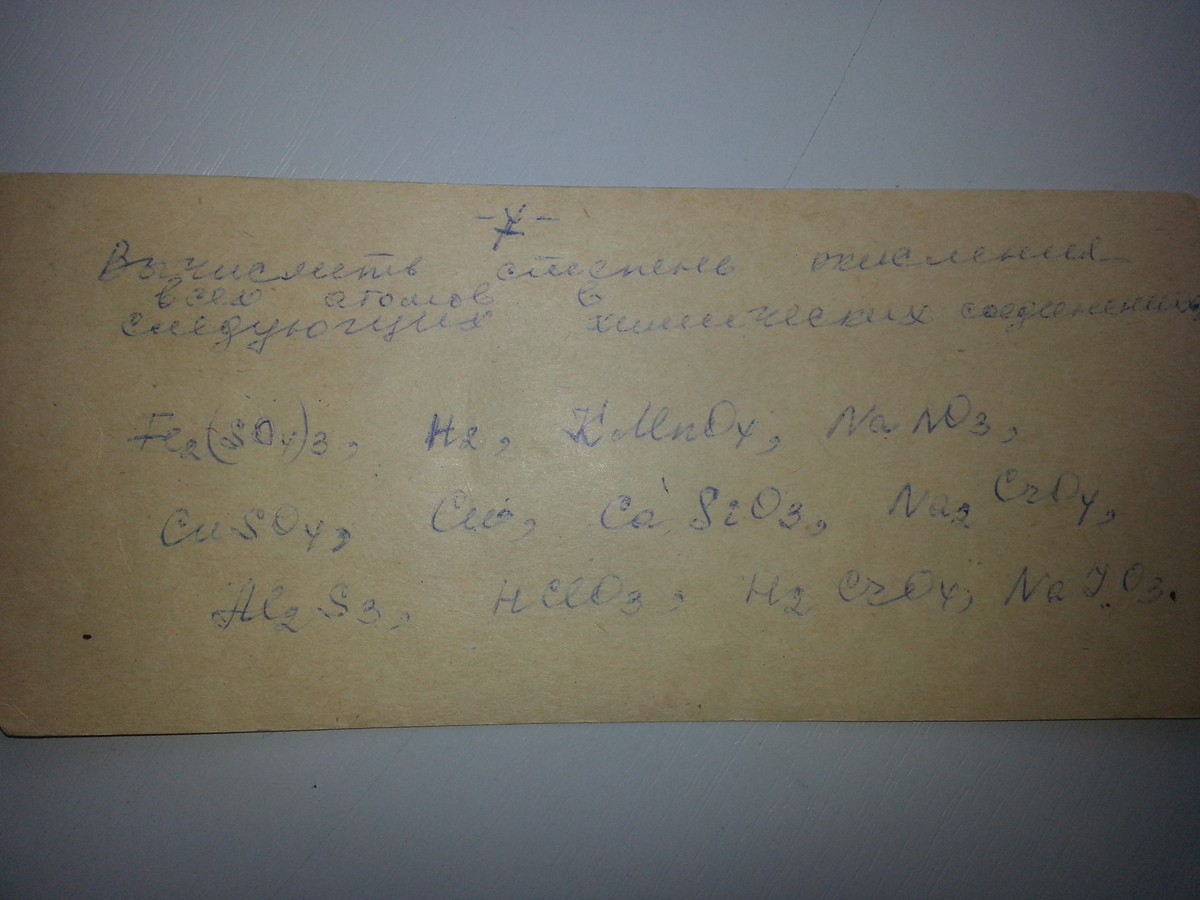 Вычислить степень окисления
всех атомов в
следующих химических соединениях
Fe₂(SO₄)₃, H₂, KMnO₄, NaNO₃,
CuSO₄, Ca SiO₃, Na₂CrO₄,
Al₂S₃, HClO₃, H₂CrO₄, NaJO₃.